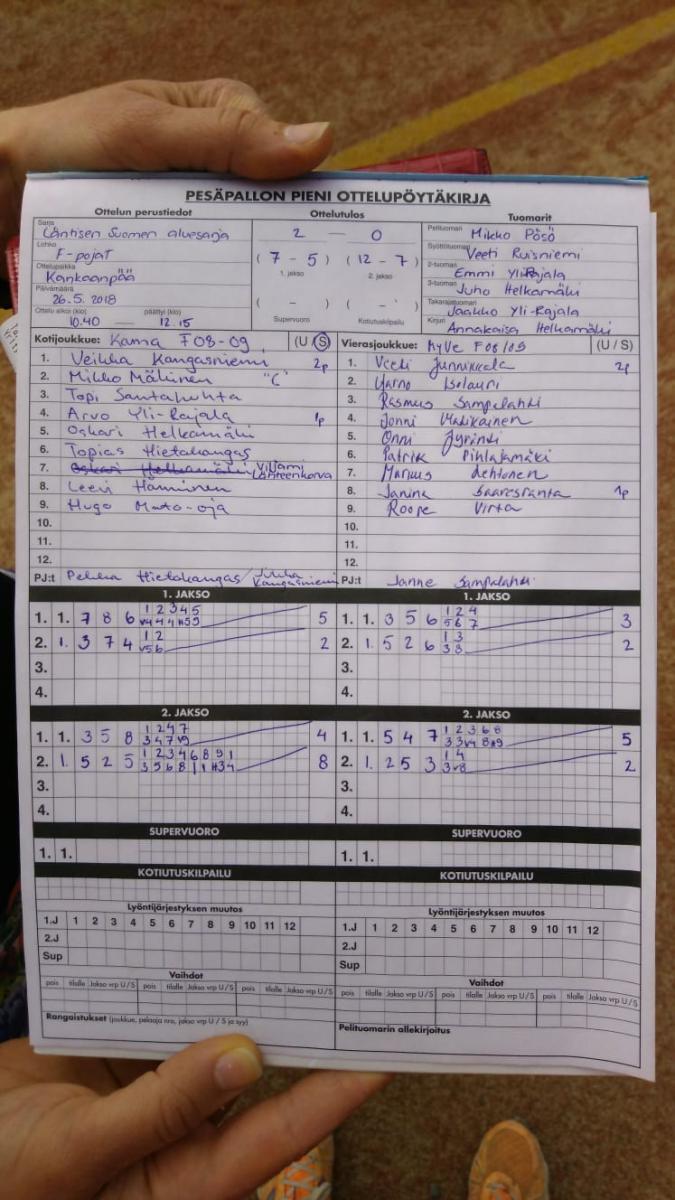 PESÄPALLON PIENI OTTELUPÖYTÄKIRJA
Ottelun perustiedot Ottelutulos Tuomarit
Sarja Läntisen Suomen aluesarja
Lohko F-pojat
Ottelupaikka Kankaanpää
Päivämäärä 26.5.2018
Ottelu alkoi (klo) päättyi (klo)
10.40 — 12.15
2 — 0
( 7 - 5 ) ( 12 - 7 )
1. jakso 2. jakso
( - ) ( - )
Supervuoro Kotiutuskilpailu
Pelituomari Mikko Pösö
Syöttötuomari Veeti Ruisniemi
2-tuomari Emmi Yli-Rajala
3-tuomari Juho Helkamäki
Takarajatuomari Jaakko Yli-Rajala
Kirjuri Annakaisa Helkamäki
Kotijoukkue: Kama F08-09 (U / S)
1. Veikka Kangasniemi 2p
2. Mikko Mäkinen "C"
3. Topi Santahuhta
4. Arvo Yli-Rajala 1p
5. Oskari Helkamäki
6. Topias Hietakangas
7. Oskari Helkamäki Viljami Lähteenkorva
8. Leevi Hänninen
9. Hugo Mato-oja
10.
11.
12.
PJ:t Pekka Hietakangas / Jukka Kangasniemi
Vierasjoukkue: HyVe F08/09 (U / S)
1. Veeti Junnikkala 2p
2. Yarno Isolauri
3. Rasmus Sampalahti
4. Jonni
5. Onni Jyrinki
6. Patrik Pihlajamäki
7. Markus Lehtonen
8. Janina Saaresranta 1p
9. Roope Virta
10.
11.
12.
PJ:t Janne Sampalahti
1. JAKSO
1. 1. 7 8 6 1 2 3 4 5 5
2. 1. 3 7 4 1 2 2
3.
4.
1. JAKSO
1. 1. 3 5 6 1 2 4 3
5 6 7
2. 1. 5 2 6 1 3 2
3 8
3.
4.
2. JAKSO
1. 1. 3 5 8 1 2 4 7 4
2. 1. 5 2 5 1 2 3 4 6 8 9 1 8
3.
4.
2. JAKSO
1. 1. 5 4 7 1 2 3 6 8 5
2. 1. 2 5 3 1 4 2
3.
4.
SUPERVUORO
1. 1.
SUPERVUORO
1. 1.
KOTIUTUSKILPAILU
KOTIUTUSKILPAILU
Lyöntijärjestyksen muutos
1.J 1 2 3 4 5 6 7 8 9 10 11 12
2.J
Sup
Lyöntijärjestyksen muutos
1.J 1 2 3 4 5 6 7 8 9 10 11 12
2.J
Sup
Vaihdot
pois tilalle Jakso vrp U / S pois tilalle Jakso vrp U / S pois tilalle Jakso vrp U / S
Vaihdot
pois tilalle Jakso vrp U / S pois tilalle Jakso vrp U / S pois tilalle Jakso vrp U / S
Rangaistukset (joukkue, pelaaja nro, jakso vrp U / S ja syy)
Pelituomarin allekirjoitus